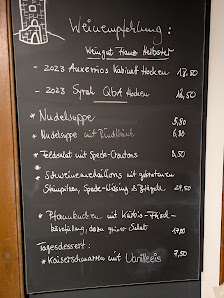 Weinempfehlung :
Weingut Franz Helbster
- 2023 Auxerrois Kabinet trocken 18,50
- 2023 Syrah QbA trocken 18,50
* Nudelsuppe 5,80
* Nudelsuppe mit Rindfleisch 6,80
* Feldsalat mit Speck-Croutons 8,50
* Schweinemedaillons mit gebratenen
Steinpilzen, Speck-Wirsing & Brägele 24,50
* Pfannkuchen mit Kürbis-
füllung, dazu grüner Salat 17,80
Tagesdessert :
* Kaiserschmarrn mit Vanilleeis 7,50